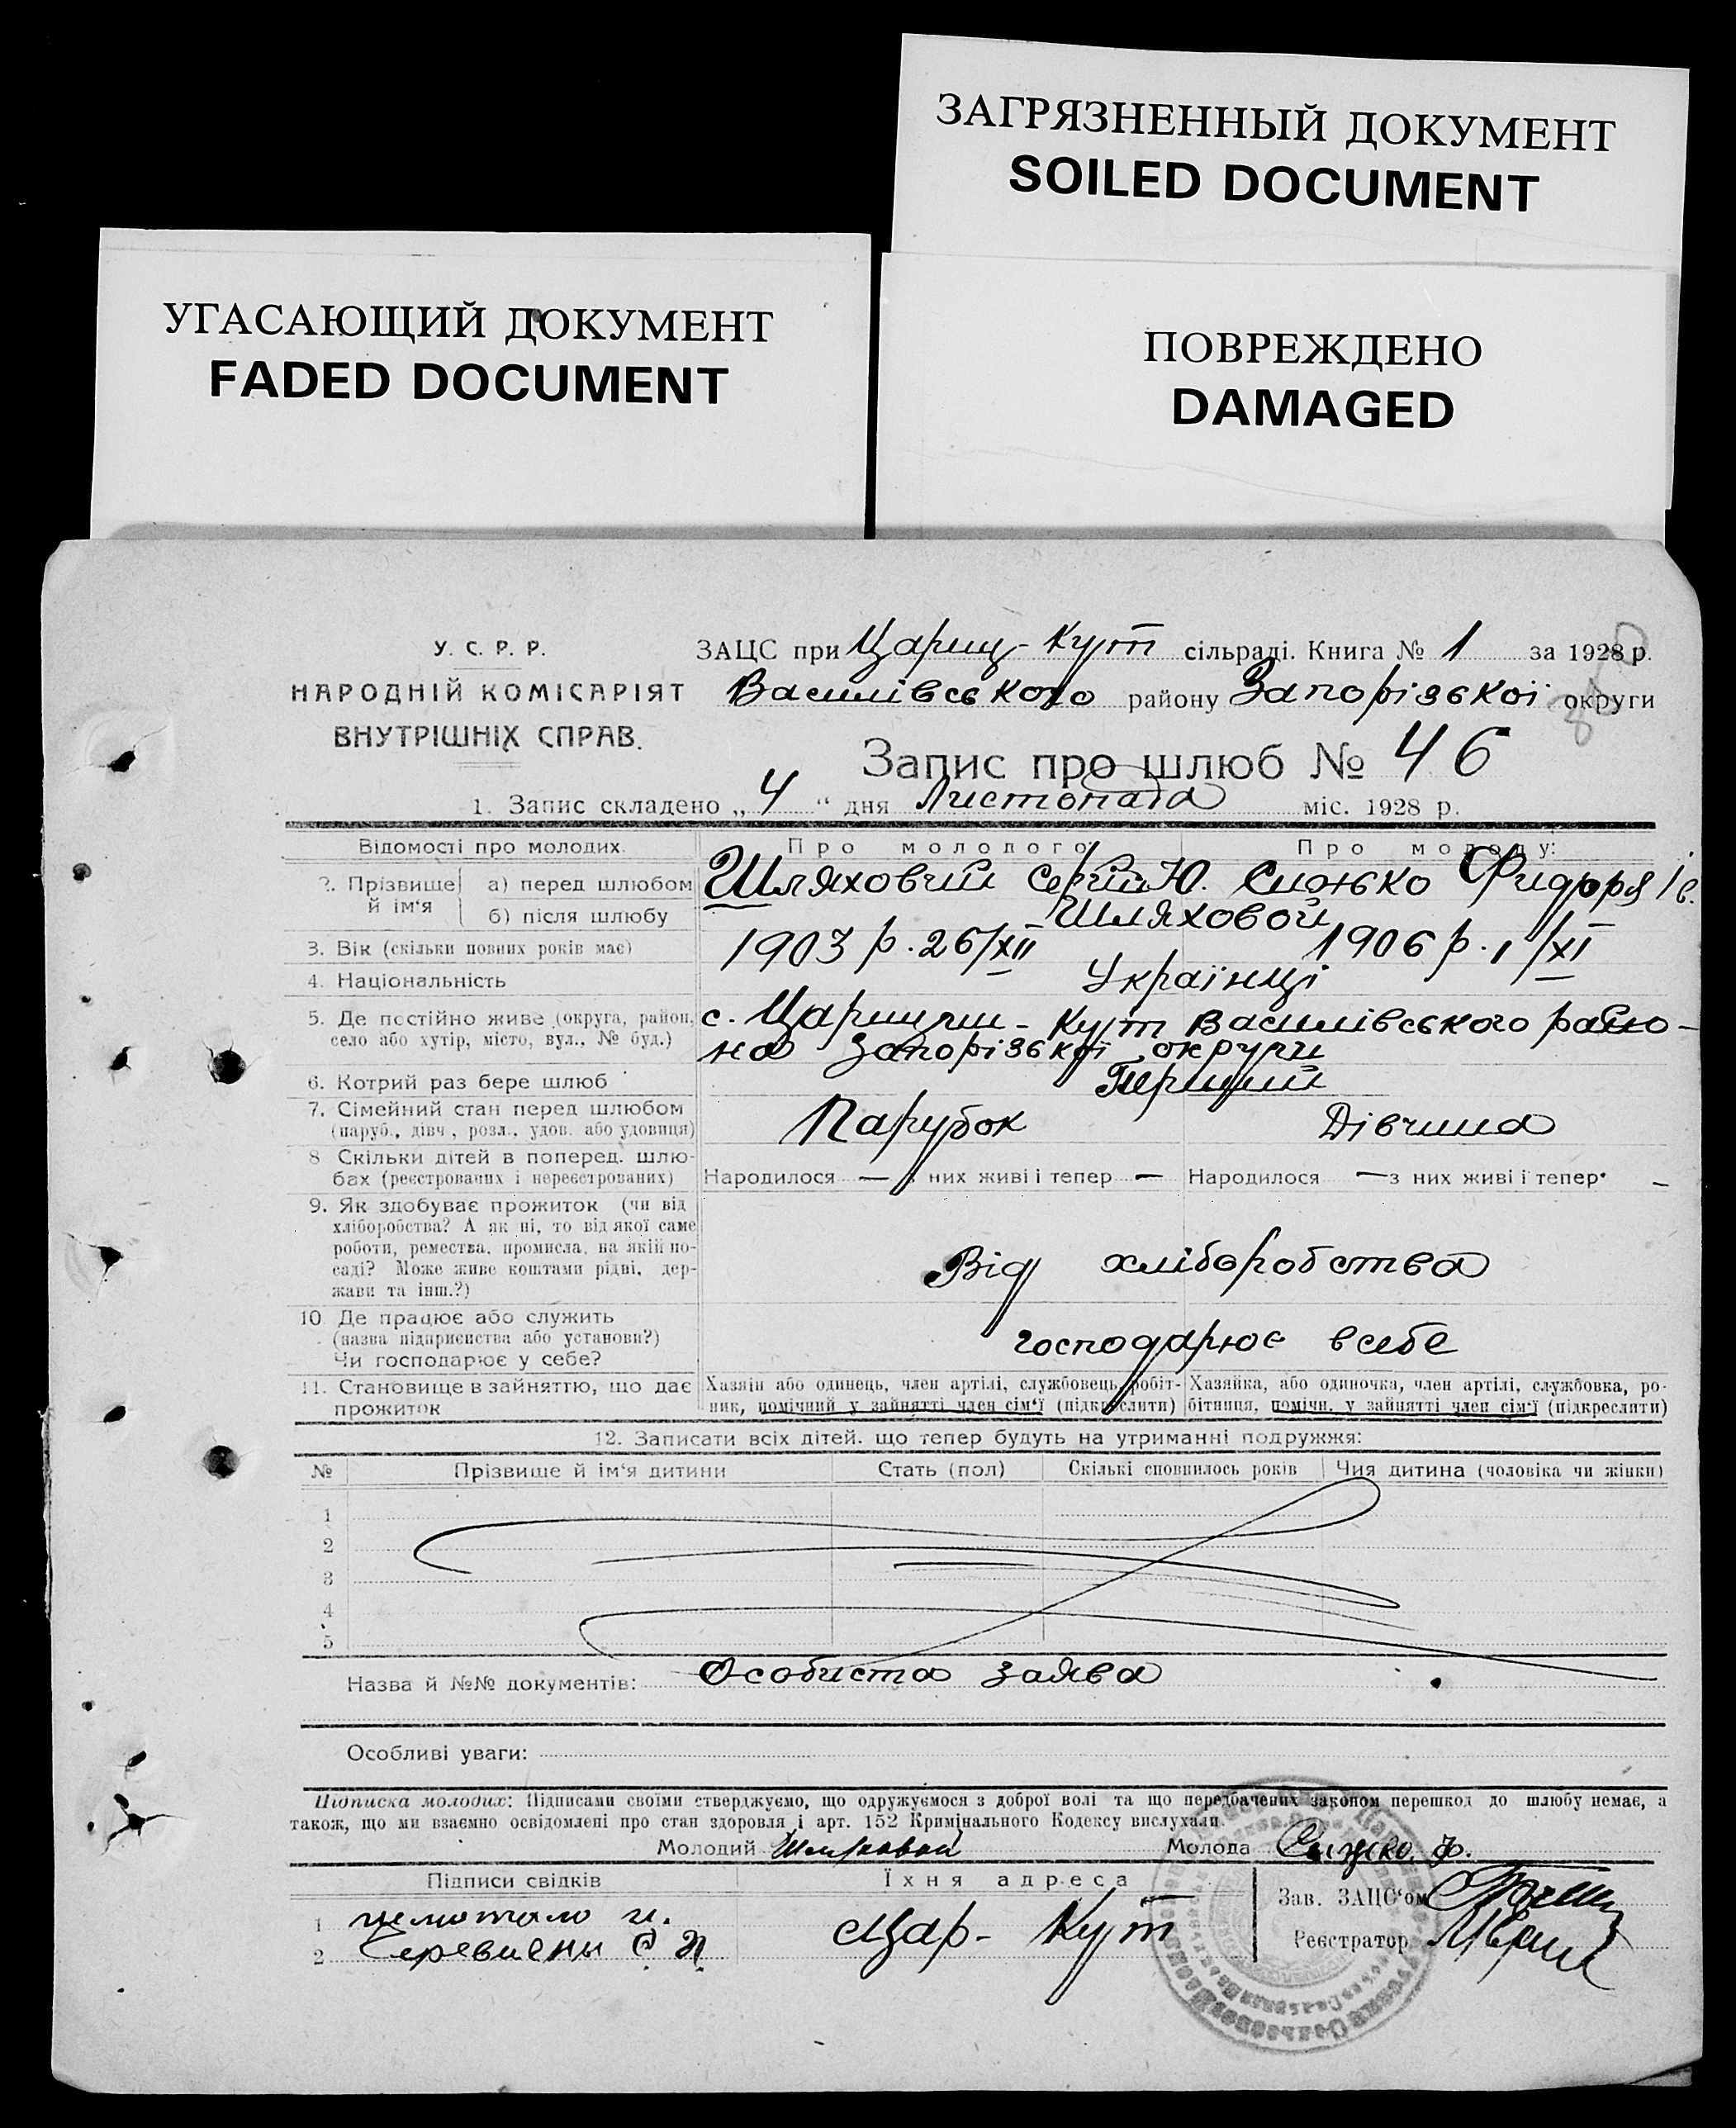 ЗАГРЯЗНЕННЫЙ ДОКУМЕНТ
SOILED DOCUMENT
УГАСАЮЩИЙ ДОКУМЕНТ
FADED DOCUMENT
ПОВРЕЖДЕНО
DAMAGED
У. С. Р. Р.
НАРОДНІЙ КОМІСАРІЯТ
ВНУТРІШНІХ СПРАВ.
ЗАЦС при Цариц-Кут сільраді. Книга № 1 за 1928 р.
Василівського району Запорізької округи
Запис про шлюб № 46
1. Запис складено „4“ дня Листопада міс. 1928 р.
Відомості про молодих. Про молодого: Про молоду:
2. Прізвище й ім'я
а) перед шлюбом Шляховий Сергій Ю. Сидько Фидоря Ів.
б) після шлюбу Шляховой
3. Вік (скільки повних років має) 1903 р. 26/XII 1906 р. 1/XI
4. Національність Українці
5. Де постійно живе (округа, район, с. Царицин-Кут Василівського райо-
село або хутір, місто, вул., № буд.) на Запорізької округи
6. Котрий раз бере шлюб Перший
7. Сімейний стан перед шлюбом Парубок Дівчина
(паруб., дівч., розл., удов. або удовиця)
8 Скільки дітей в поперед. шлю-
бах (реєстрованих і нереєстрованих) Народилося — з них живі і тепер — Народилося — з них живі і тепер —
9. Як здобуває прожиток (чи від
хліборобства? А як ні, то від якої саме
роботи, ремества, промисла, на якій по-
саді? Може живе коштами рідні, дер-
жави та інш.?)
Від хліборобства
10 Де працює або служить
(назва підприємства або установи?)
Чи господарює у себе?
господарює в себе
11. Становище в зайняттю, що дає прожиток
Хазяїн або одинець, член артілі, службовець, робіт-
ник, помічний у зайнятті член сім'ї (підкреслити)
Хазяйка, або одиночка, член артілі, службовка, ро-
бітниця, помічн. у зайнятті член сім'ї (підкреслити)
12. Записати всіх дітей. що тепер будуть на утриманні подружжя:
№ Прізвише й ім'я дитини Стать (пол) Скількі сповнилось років Чия дитина (чоловіка чи жінки)
1
2
3
4
5
Назва й №№ документів: Особиста заява
Особливі уваги:
Підписка молодих: Підписами своїми стверджуємо, що одружуємося з доброї волі та що передбачених законом перешкод до шлюбу немає, а
також, що ми взаємно освідомлені про стан здоровля і арт. 152 Кримінального Кодексу вислухали.
Молодий Шляховой Молода Сидько. Ф.
Підписи свідків Їхня адреса
Зав. ЗАЦС'ом
1
2
Цар-Кут
Реєстратор